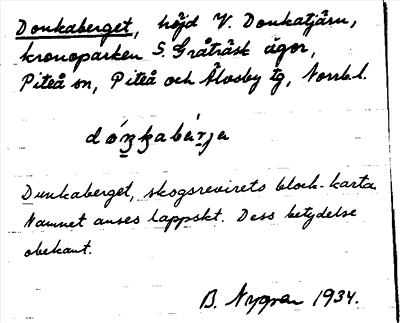 Donkaberget, höjd V. Donkatjärn,
kronoparken S. Gråträsk ägor,
Piteå sn, Piteå och Älvsby tg, Norrb. l.
dóŋkabàrja
Dunkaberget, skogsrevirets block-karta
Namnet anses lappskt. Dess betydelse
obekant.
B. Nygren 1934.